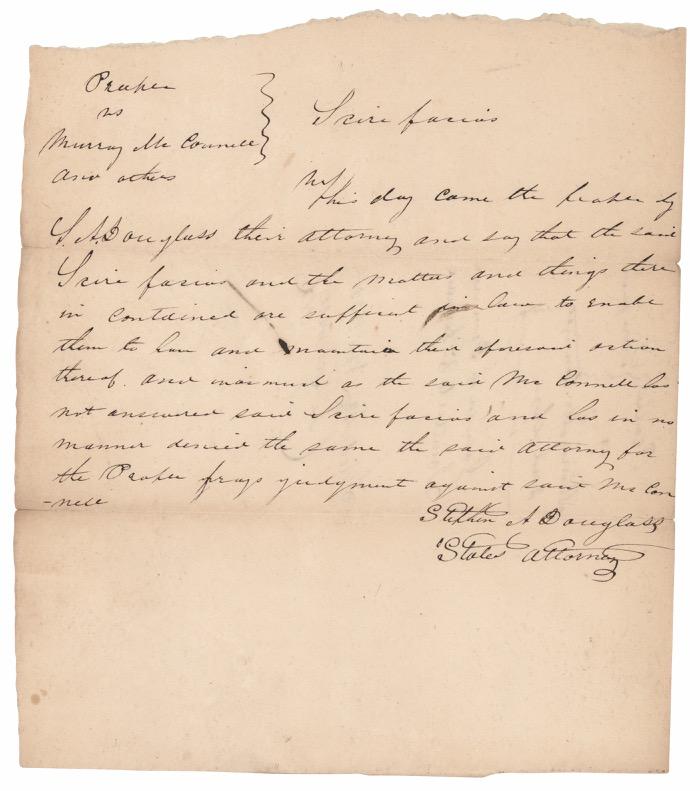 People
vs
Murray Mc Connell
and others
Scire facias
this day came the People by
S. A. Douglass their attorney and say that the said
Scire facias and the matters and things there
in contained are sufficient in law to enable
them to have and maintain their aforesaid action
thereof. and inasmuch as the said Mc Connell has
not answered said Scire facias and has in no
manner denied the same the said attorney for
the People prays judgment against said Mc Con
-nell
Stephen A Douglass
States Attorney